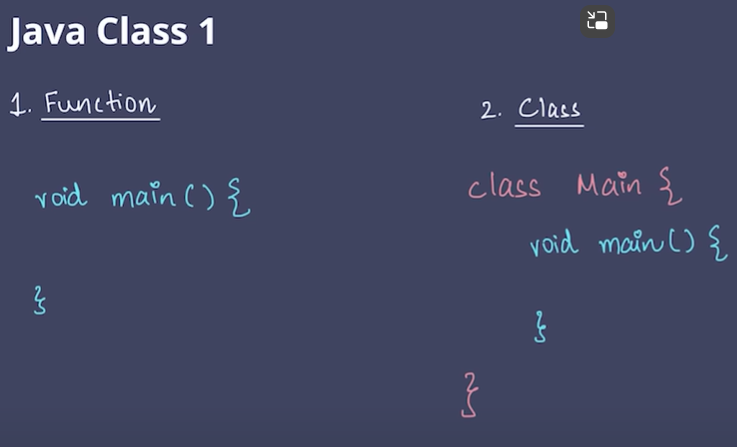 Java Class 1
1. Function
void main() {
}
2. Class
class Main {
void main() {
}
}